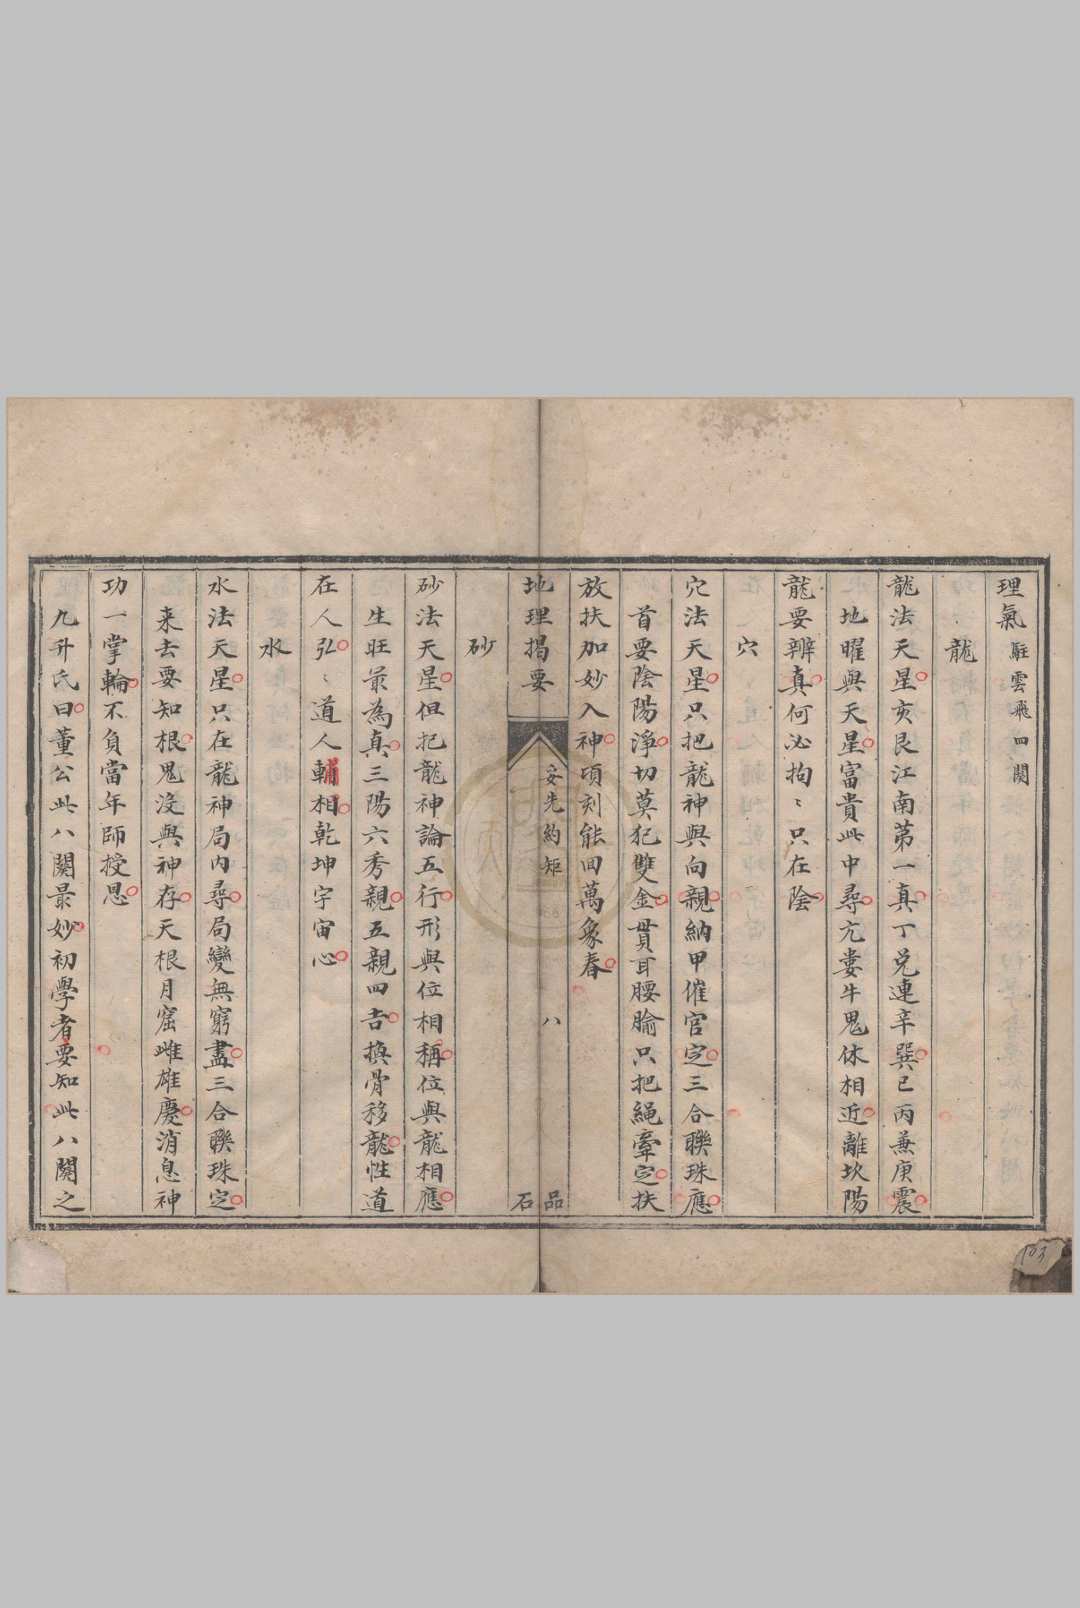 理氣 駐雲飛四闋
龍
龍法天星亥艮江南苐一真丁兌連辛巽巳丙兼庚震
地曜與天星富貴此中尋亢婁牛鬼休相近離坎陽
龍要辨真何必拘〻只在陰
穴
穴法天星只把龍神與向親納甲催官定三合聯珠應
首要陰陽淨切莫犯雙金貫耳腰腧只把繩牽定扶
放扶加妙入神頃刻能回萬象春
地理揭要 安先約矩 八 品石
砂
砂法天星但把龍神論五行形與位相稱位與龍相應
生旺最為真三陽六秀親五親四吉換骨移龍性道
在人弘〻道人輔相乾坤宇宙心
水
水法天星只在龍神局內尋局變無窮盡三合聯珠定
来去要知根鬼沒與神存天根月窟雌雄慶消息神
功一掌輪不負當年師授恩
九升氏曰董公此八闋最妙初學者要知此八闋之
103